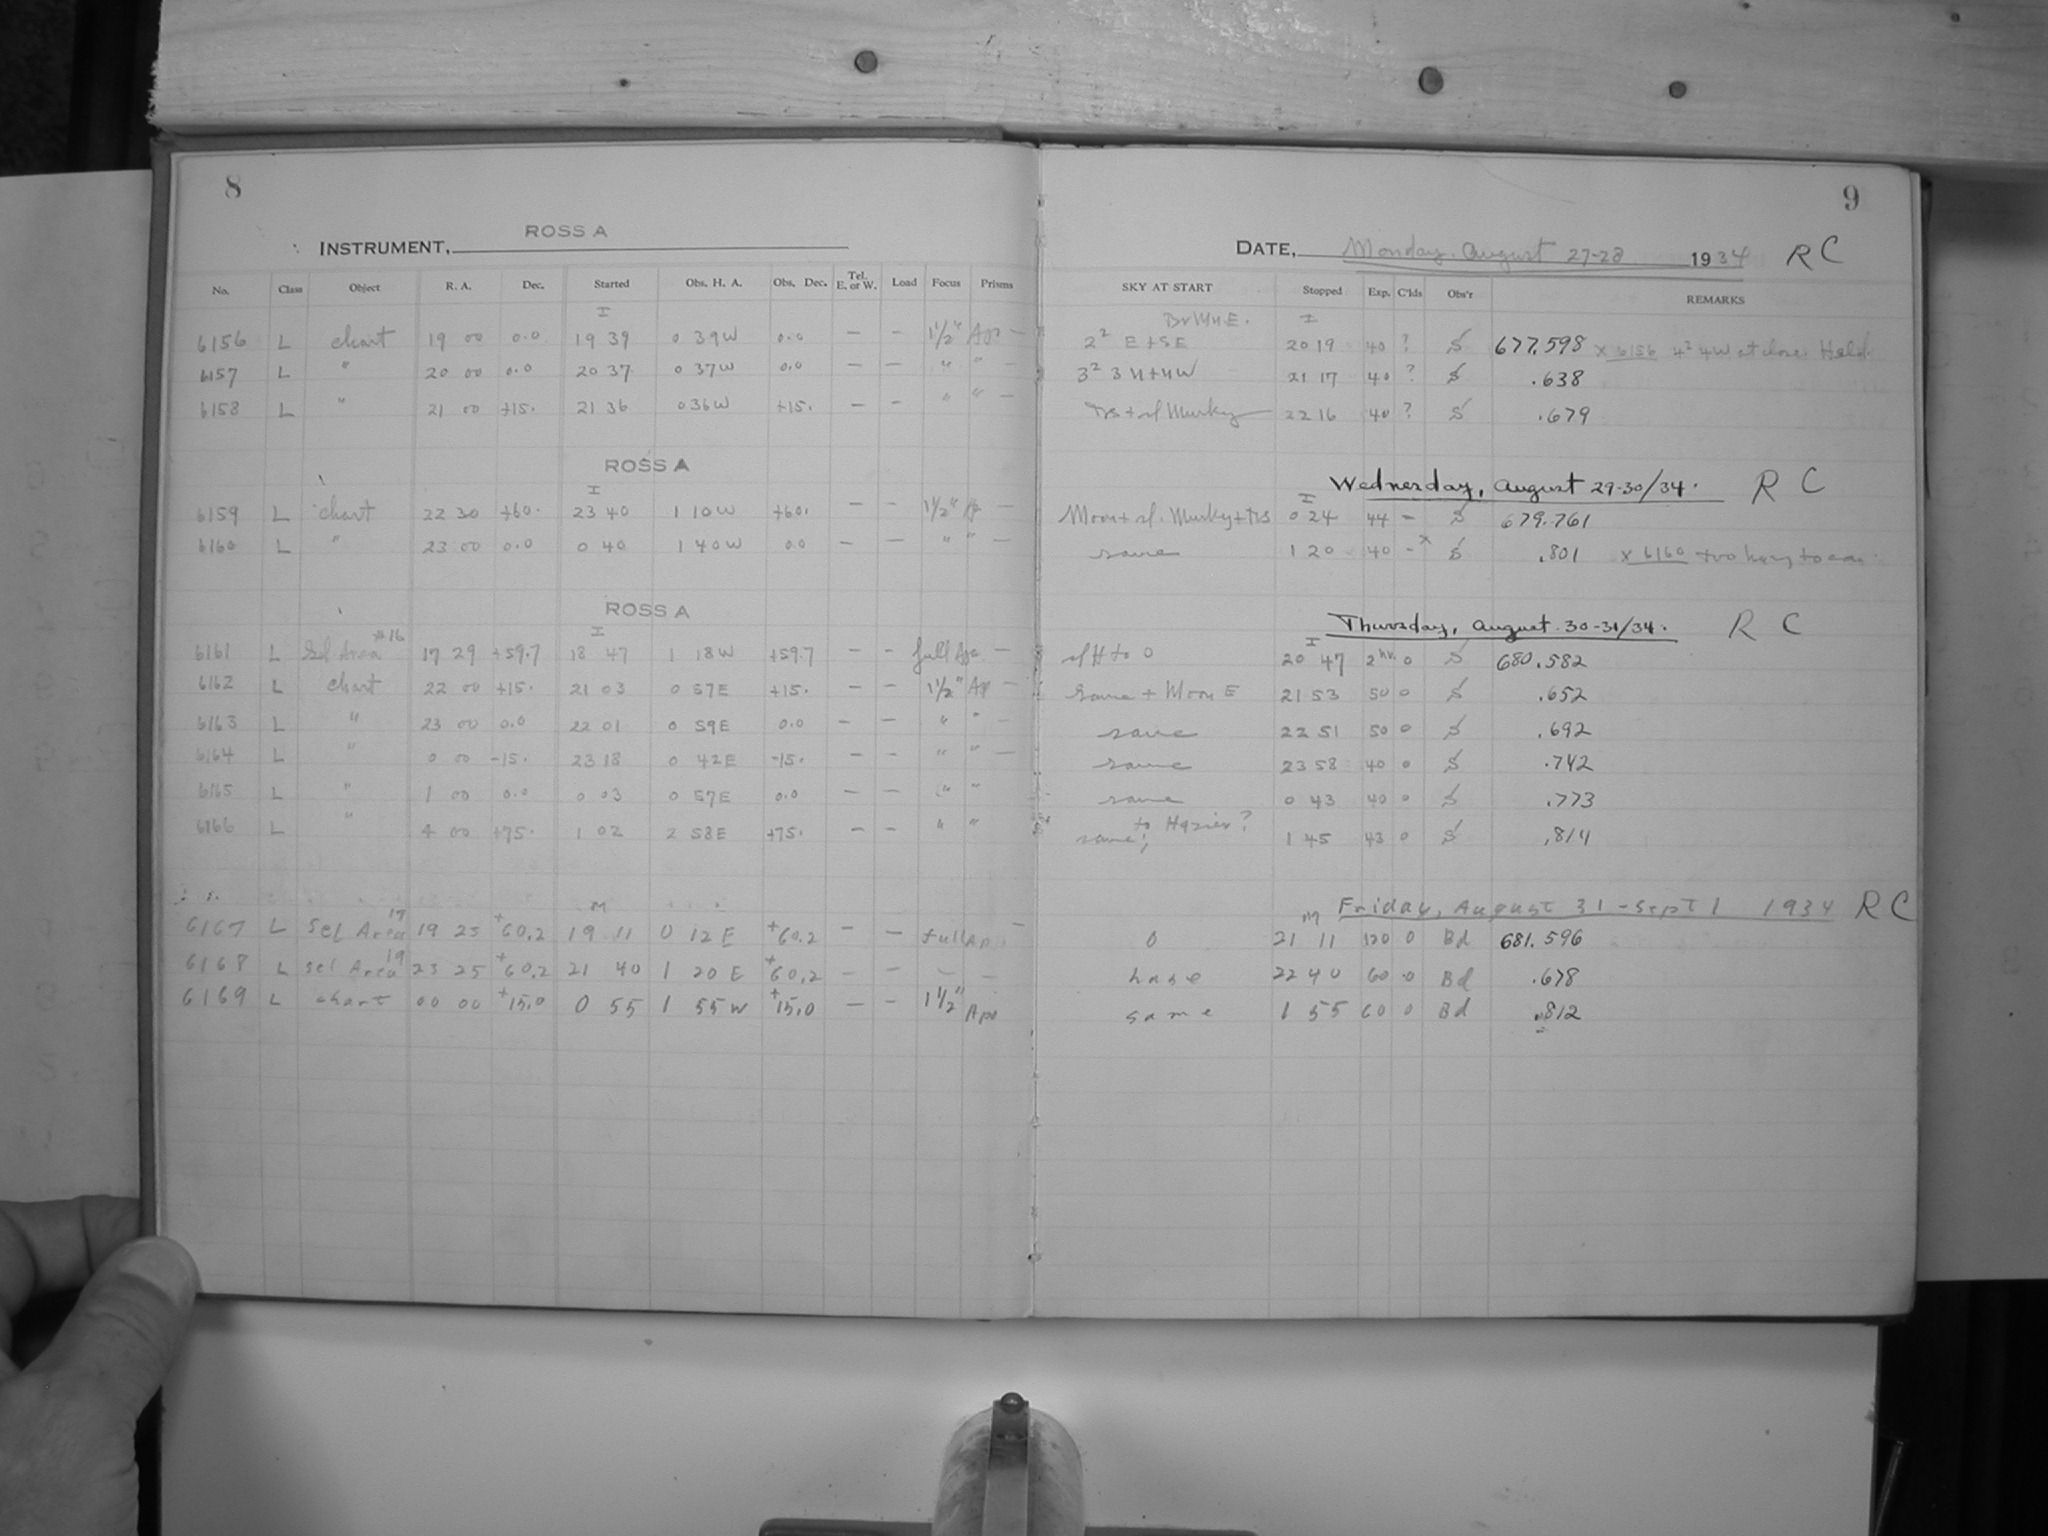 8
INSTRUMENT, ROSS A
No. Class Object R. A. Dec. Started Obs. H. A. Obs. Dec. Tel. E. or W. Load Focus Prisms
I
6156 L chart 19 00 0.0 19 39 0 39W 0.0 — — 1½" Ap —
6157 L " 20 00 0.0 20 37 0 37W 0.0 — — " " —
6158 L " 21 00 +15. 21 36 0 36W +15. — — " " —
ROSS A
I
6159 L chart 22 30 +60. 23 40 1 10W +60. — — 1½" Ap —
6160 L " 23 00 0.0 0 40 1 40W 0.0 — — " " —
ROSS A
I
6161 L Sel Area #16 17 29 +59.7 18 47 1 18W +59.7 — — full Ap —
6162 L chart 22 00 +15. 21 03 0 57E +15. — — 1½" Ap —
6163 L " 23 00 0.0 22 01 0 59E 0.0 — — " " —
6164 L " 0 00 -15. 23 18 0 42E -15. — — " " —
6165 L " 1 00 0.0 0 03 0 57E 0.0 — — " "
6166 L " 4 00 +75. 1 02 2 58E +75. — — " "
M
6167 L Sel Area 19 19 25 +60.2 19 11 0 12 E +60.2 — — full Ap —
6168 L Sel Area 19 23 25 +60.2 21 40 1 20 E +60.2 — — — —
6169 L chart 00 00 +15.0 0 55 1 55 W +15.0 — — 1½" Ap
9
DATE, Monday, August 27-28 1934 R C
SKY AT START Stopped Exp. C'lds Obs'r REMARKS
I
2² E+SE 20 19 40 ? S 677.598 x 6156 4² 4W at close. Held.
3² 3 20 21 17 40 ? S .638
+ sl Murky 22 16 40 ? S .679
Wednesday, August 29-30/34. R C
I
Moon + sl. Murky + 0 24 44 — S 679.761
same 1 20 40 — x S .801 x 6160 too hazy to
Thursday, August 30-31/34. R C
I
sl H to 0 20 47 2 hr. 0 S 680.582
same + Moon E 21 53 50 0 S .652
same 22 51 50 0 S .692
same 23 58 40 0 S .742
same 0 43 40 0 S .773
same; to Hazier? 1 45 43 0 S .814
Friday, August 31 - Sept 1 1934 R C
M
0 21 11 120 0 Bd 681.596
haze 22 40 60 0 Bd .678
same 1 55 60 0 Bd .812